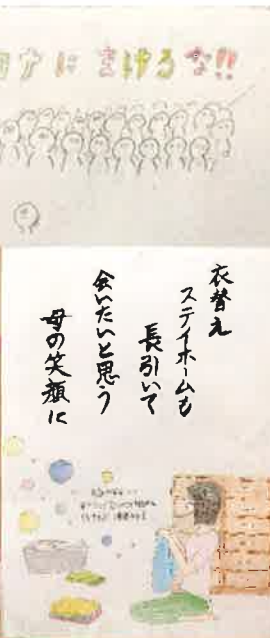 ロナにまけるな!!
衣替え
ステイホームも
長引いて
会いたいと思う
母の笑顔に